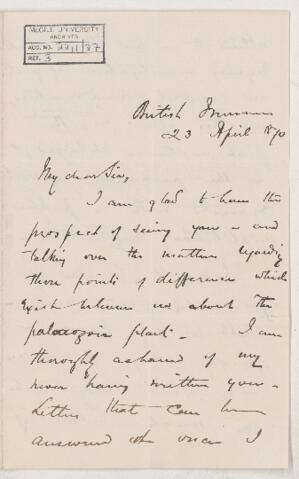 McGILL UNIVERSITY
ARCHIVES
ACC. NO.
REF. 3
British Museum
23 April 1870
My dear Sir,
I am glad to have the
prospect of seeing you - and
talking over the matters regarding
those points of difference which
exist between us about the
palaeozoic plants - I am
thoroughly ashamed of my
never having written you -
Letters that can be
answered at once I